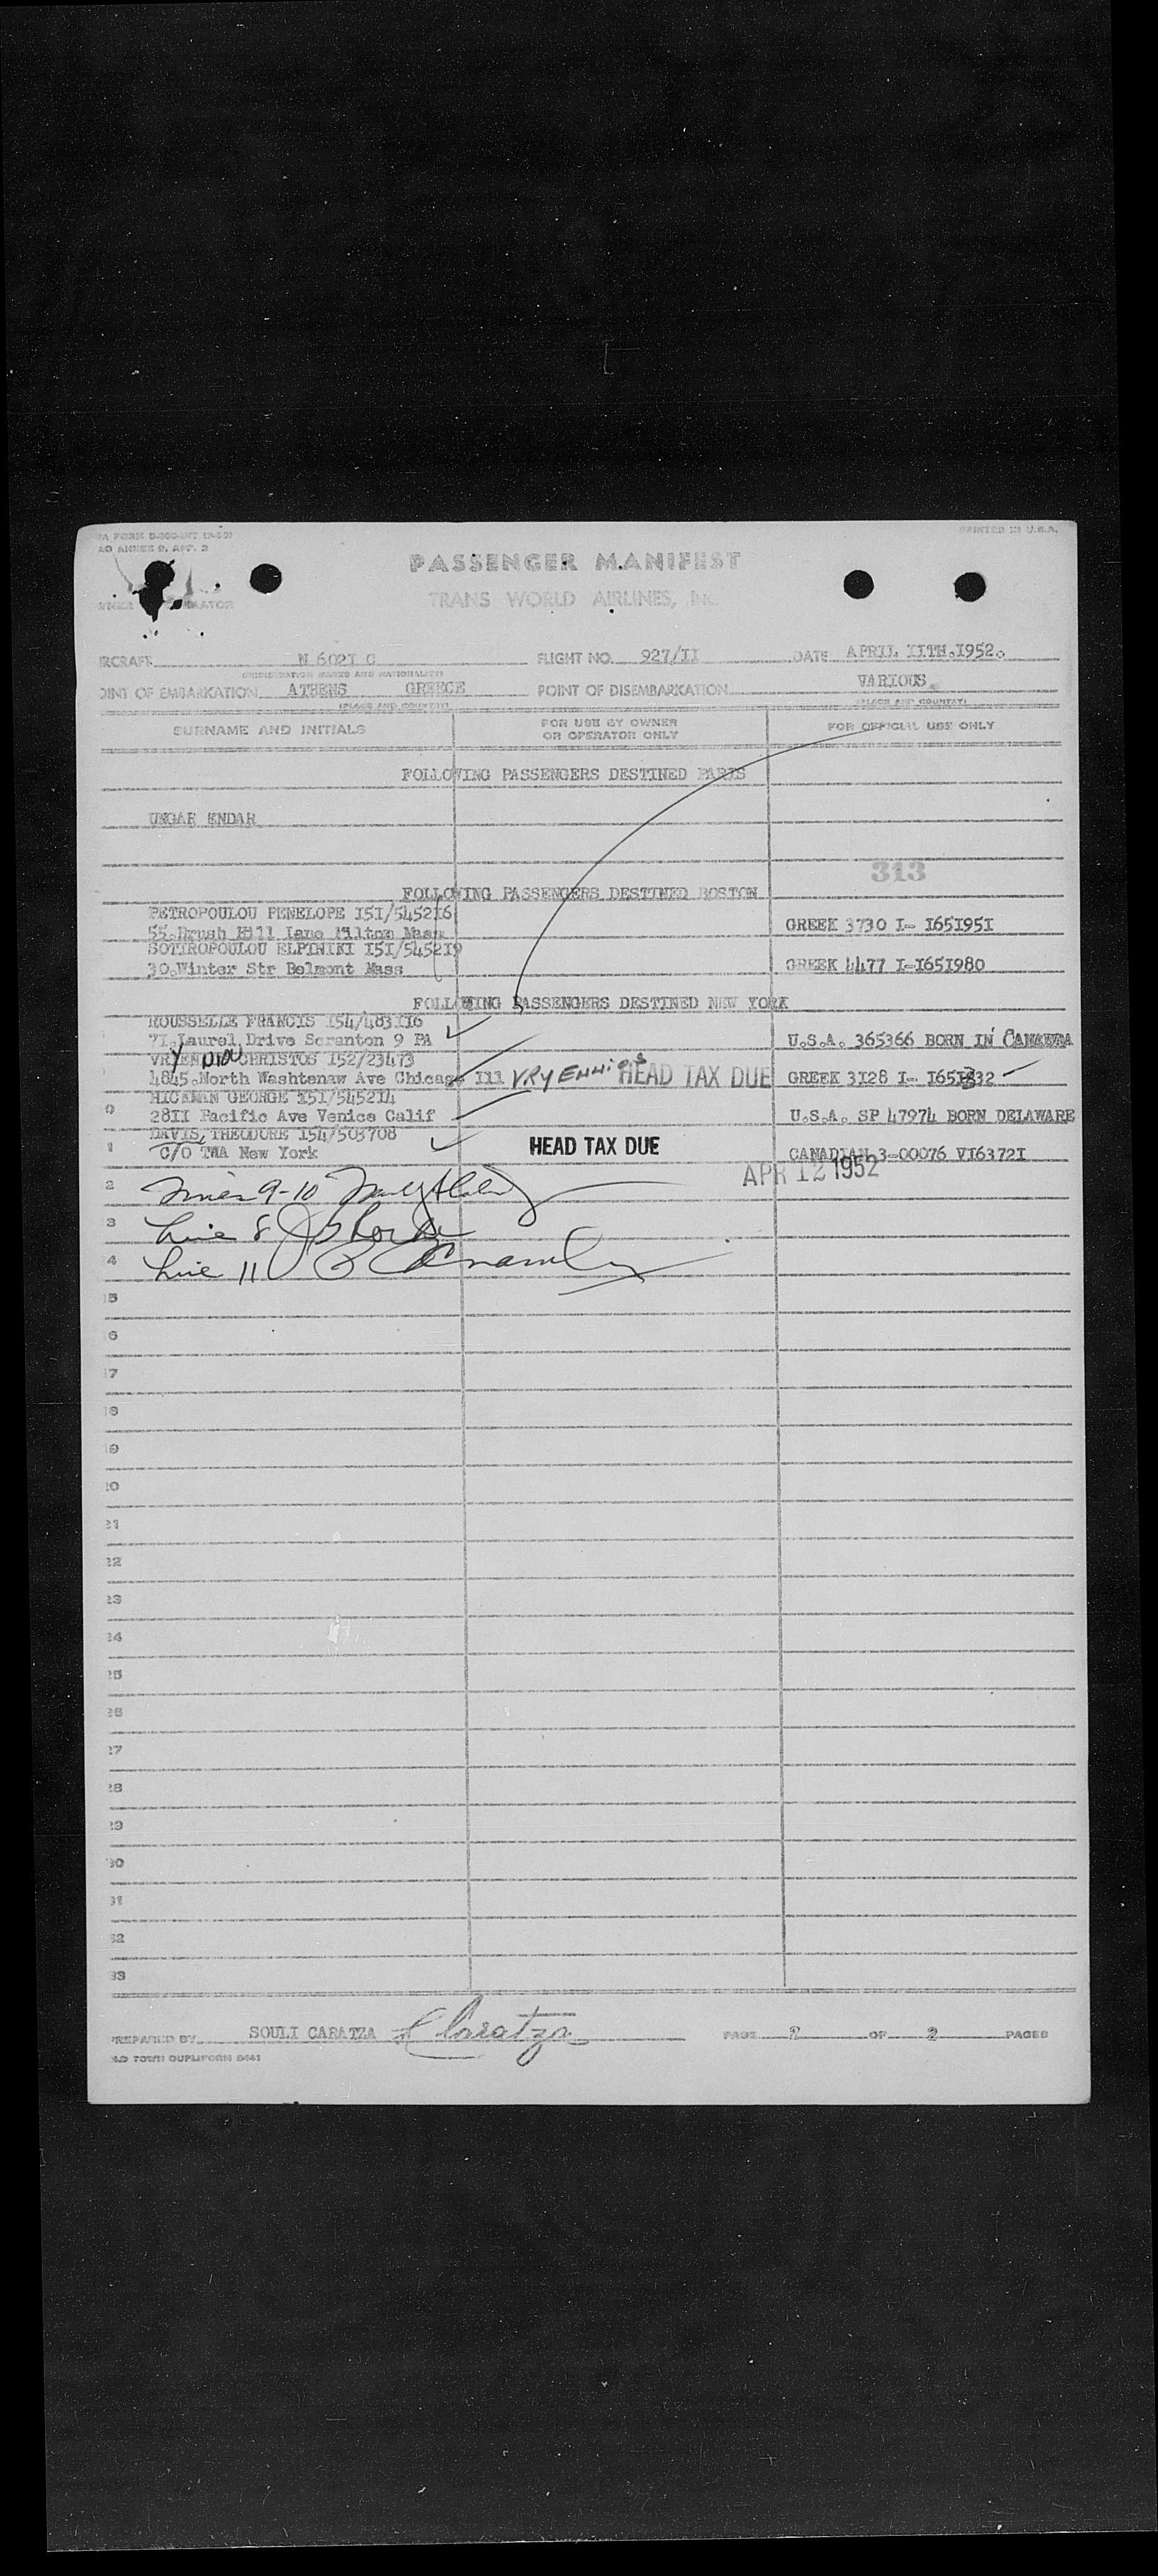 PRINTED IN U.S.A.
PASSENGER MANIFEST
TRANS WORLD AIRLINES, INC.
N 6021 C FLIGHT NO. 927/II DATE APRIL IITH.1952.
POINT OF EMBARKATION ATHENS GREECE POINT OF DISEMBARKATION VARIOUS
(PLACE AND COUNTRY) (PLACE AND COUNTRY)
SURNAME AND INITIALS FOR USE BY OWNER OR OPERATOR ONLY FOR OFFICIAL USE ONLY
FOLLOWING PASSENGERS DESTINED PARIS
UNGAR ENDAR
313
FOLLOWING PASSENGERS DESTINED BOSTON
PETROPOULOU PENELOPE I5I/545216
55.Brush Hill Lane Milton Mass GREEK 3730 I- I65I95I
SOTIROPOULOU ELPINIKI I5I/545219
30.Winter Str Belmont Mass GREEK 4477 I-I65I980
FOLLOWING PASSENGERS DESTINED NEW YORK
ROUSSELLE FRANCIS I54/483II6
7I.Laurel Drive Scranton 9 PA U.S.A. 365366 BORN IN
CHRISTOS I52/23473
4845.North Washtenaw Ave Chicago Ill HEAD TAX DUE GREEK 3I28 I-
HICKMAN GEORGE I5I/545214
0 28II Pacific Ave Venice Calif U.S.A. SP 47974 BORN DELAWARE
DAVIS, THEODORE I54/503708
1 C/O TWA New York HEAD TAX DUE CANADIAN 3-00076 VI6372I
APR 12 1952
2 9-10
3 Line 8
4 Line 11
15
16
17
18
19
20
21
22
23
24
25
26
27
28
29
30
31
32
33
PREPARED BY SOULI CARATZA Caratza PAGE 2 OF 2 PAGES